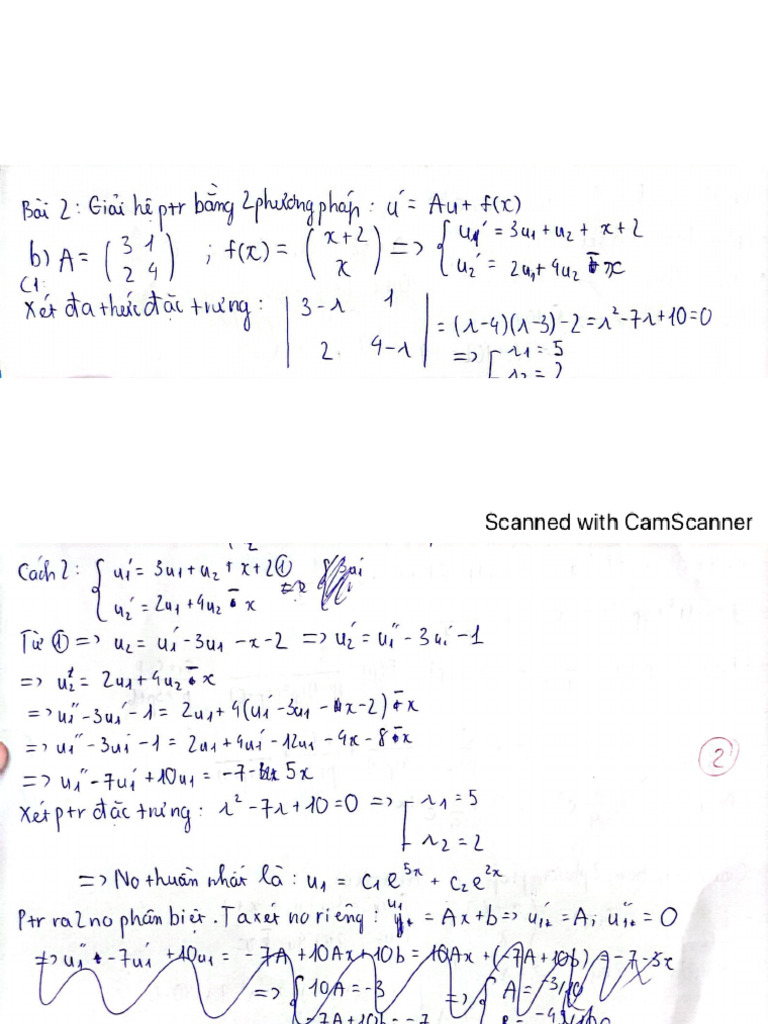 Bài 2: Giải hệ ptr bằng 2 phương pháp: u' = Au + f(x)
b) A = (3 1; 2 4) ; f(x) = (x+2; x) => { u1' = 3u1 + u2 + x + 2
u2' = 2u1 + 4u2 - x
C1:
Xét đa thức đặc trưng: |3-λ 1; 2 4-λ| = (λ-4)(λ-3)-2 = λ²-7λ+10=0
=> [ λ1 = 5
λ2 = 2
Scanned with CamScanner
Cách 2: { u1' = 3u1 + u2 + x + 2 ①
u2' = 2u1 + 4u2 - x
Từ ① => u2 = u1' - 3u1 - x - 2 => u2' = u1'' - 3u1' - 1
=> u2' = 2u1 + 4u2 - x
=> u1'' - 3u1' - 1 = 2u1 + 4(u1' - 3u1 - x - 2) - x
=> u1'' - 3u1' - 1 = 2u1 + 4u1' - 12u1 - 4x - 8 - x
=> u1'' - 7u1' + 10u1 = -7 - 5x
2
Xét ptr đặc trưng: λ² - 7λ + 10 = 0 => [ λ1 = 5
λ2 = 2
=> No thuần nhất là: u1 = c1e^5x + c2e^2x
Ptr ra 2 no phân biệt. Ta xét no riêng: u1* = Ax + b => u1*' = A; u1*'' = 0
=> u1'' - 7u1' + 10u1 = -7A + 10Ax + 10b = 10Ax + (-7A + 10b) = -7 - 3x
=> { 10A = -3 => { A = -3/10
-7A + 10b = -7